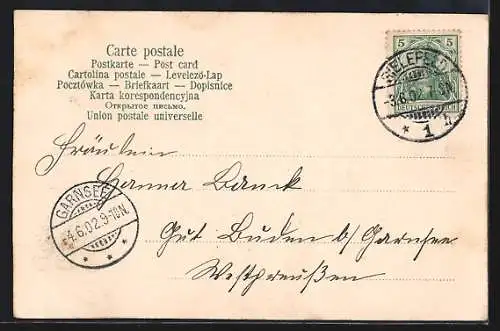 Carte postale
Postkarte — Post card
Cartolina postale — Levelező-Lap
Pocztówka — Briefkaart — Dopisnice
Karta korespondencyjna
Открытое письмо.
Union postale universelle
5 5
BIELEFELD
3.6.02
* 1 h
Fräulein
Hanna Banck
GARNSEE
4.6.02.9-10N.
* * *
Gut Buden b/ Garnsee
Westpreußen